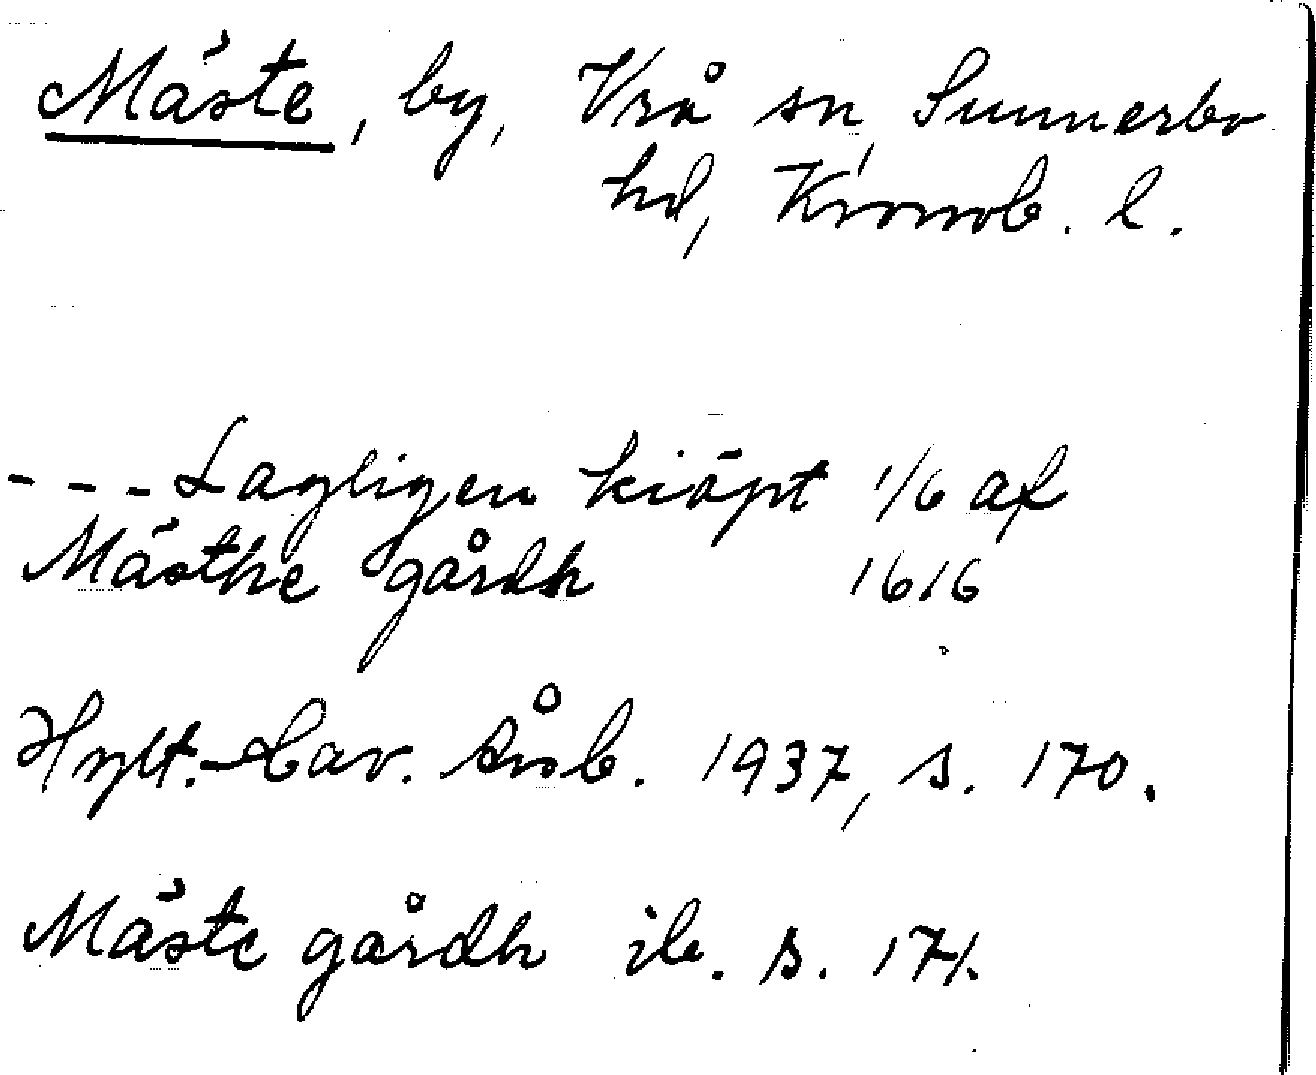 Mäste, by, Vrå sn, Sunnerbo
hd, Kronob. l.
- - - Lagligen kiöpt 1/6 af
Mästhe gårdh 1616
Hylt.-Cav. Årsb. 1937, s. 170.
Mäste gårdh ib. s. 171.